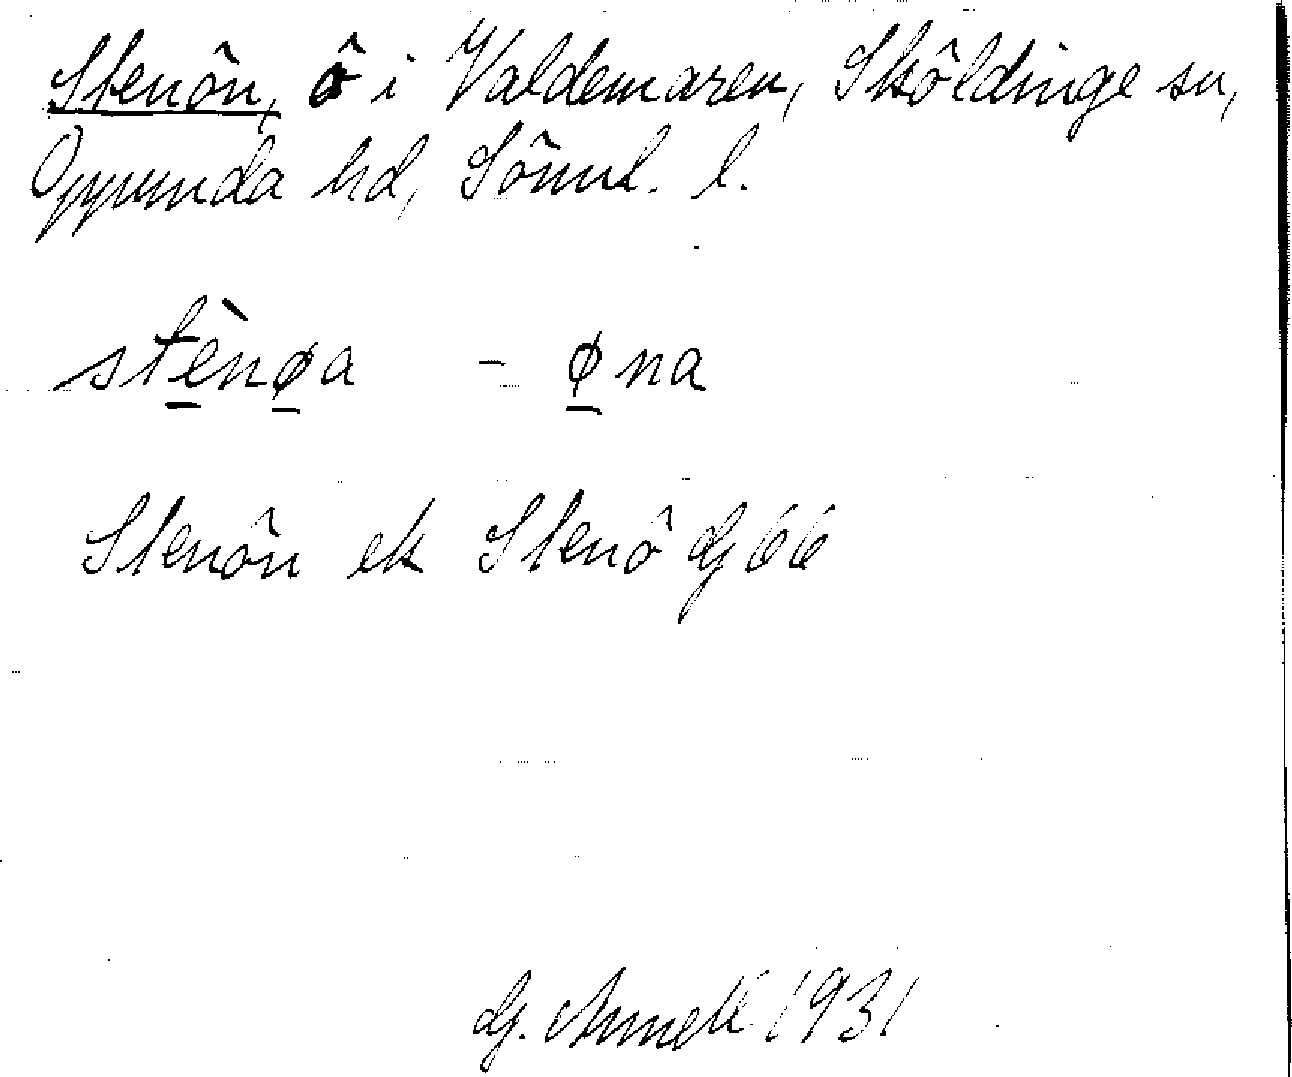 Stenön, ö i Valdemaren, Sköldinge sn,
Oppunda hd, Sörml. l.
stènøa - øna
Stenön ek Stenö Gj 66
G. 1931